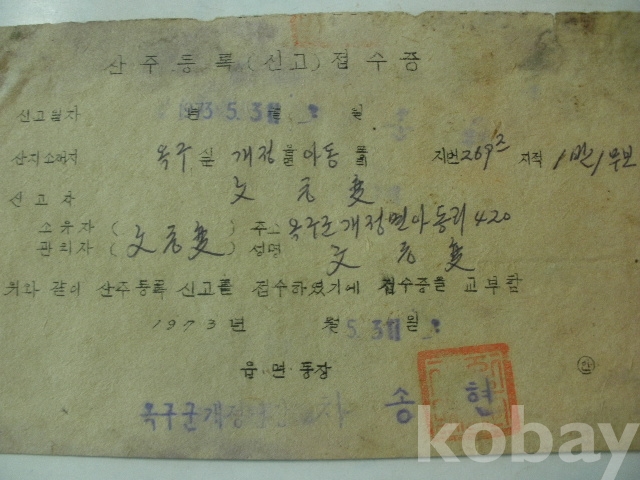 산주등록(신고)접수증
신고일자 1973. 5. 31 월 일
산지소재지 옥구 개정 아동 지번 269 지적
신고자 文元変
소유자 ( 文元変 ) 주소 옥구군개정면아동리420
관리자 성명 文元変
위와 같이 산주등록 신고를 접수하였기에 접수증을 교부함
1973년 월 5. 31 일
읍·면·동장
옥구군개정 송 현
kobay